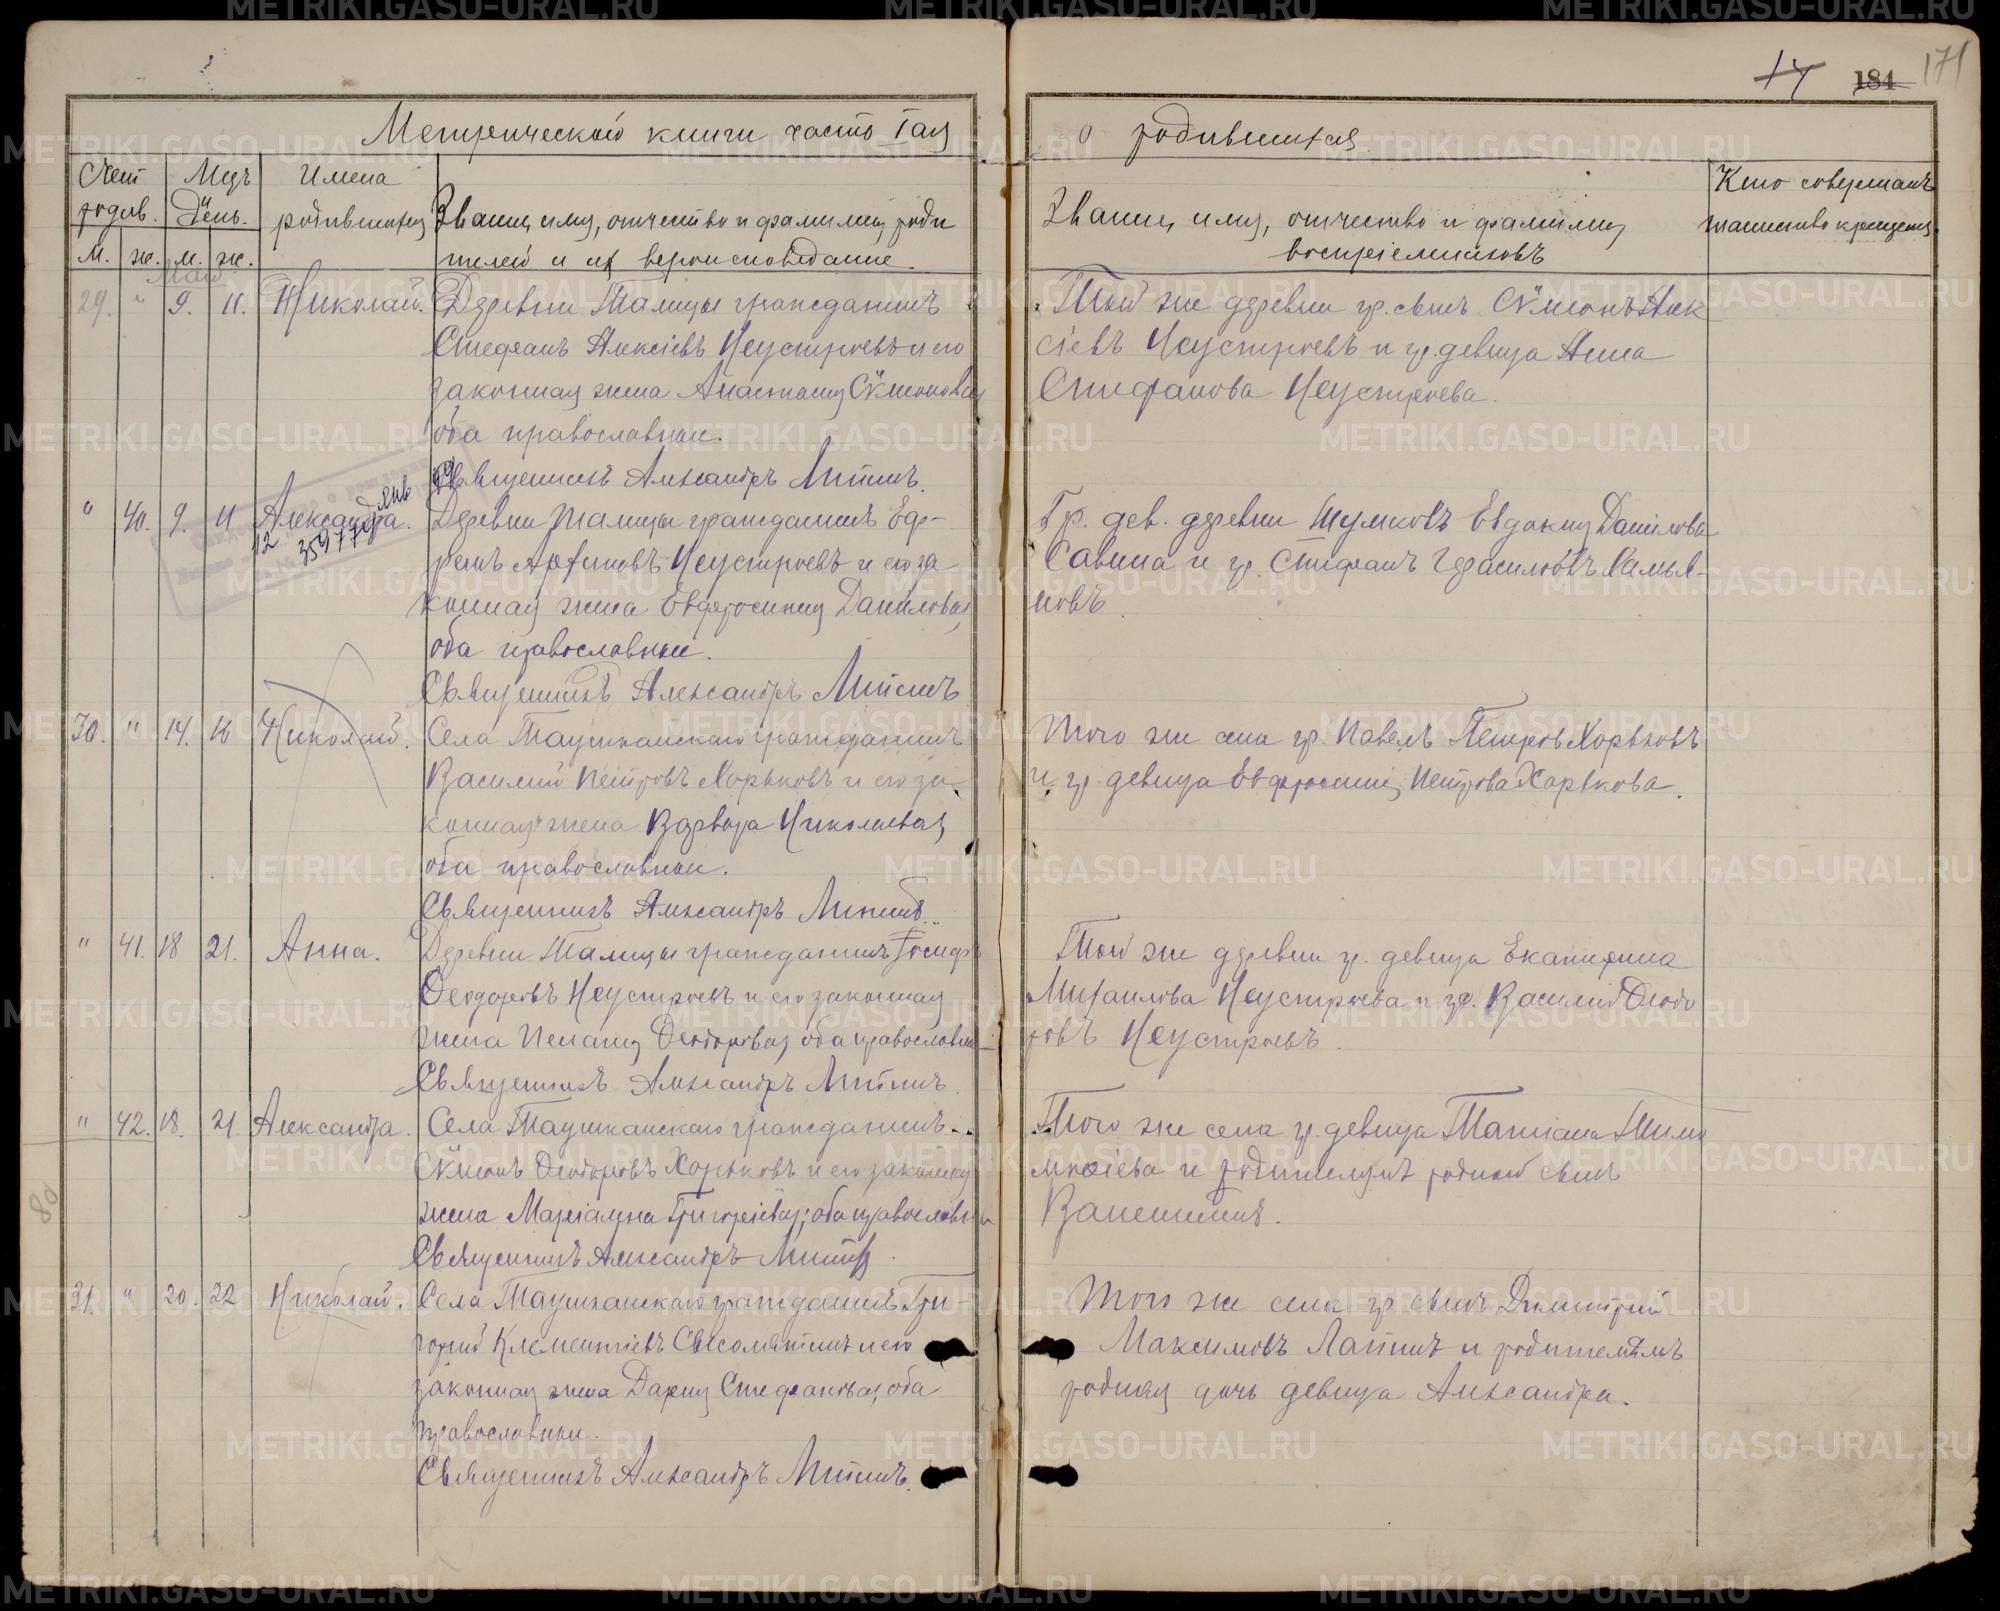 14 184 171
Метрической книги часть Iая
о родившихся
Счет родив.
Мцъ День.
Имена родившихся
Званіе, имя, отчество и фамилия роди
телей и их вероисповедание.
Званіе, имя, отчество и фамилия
восприемниковъ
Кто совершалъ
таинство крещения
М. ж. м. ж.
Май
29. " 9. 11. Николай. Деревни Талицы гражданинъ
Стефанъ Алексіевъ Неустроевъ и его
законная жена Анастасия Сѵмеоновая
оба православные.
Священникъ Александръ Липинъ.
Той же деревни гр. сынъ Сѵмеонъ Алек
сіевъ Неустроевъ и гр. девица Анна
Стефанова Неустроева.
" 40. 9. 11 Александра. Деревни Талицы гражданинъ Еф-
12 35977
ремъ Архиповъ Неустроевъ и его за
конная жена Евфросиния Даниловая,
оба православные.
Священникъ Александръ Липинъ
Гр. дев. деревни Шумковъ Евдокия Данилова
Савина и гр. Стефанъ Герасимовъ
30. " 14. 16 Николай. Села Таушканскаго гражданинъ
Василий Петровъ Хорьковъ и его за
конная жена Варвара Николаевая,
оба православные.
Священникъ Александръ Липинъ.
Того же села гр. Павелъ Петровъ Хорьковъ
и гр. девица Евфросиния Петрова Хорькова.
" 41. 18 21. Анна. Деревни Талицы гражданинъ Іосифъ
Феодоровъ Неустроевъ и его законная
жена Пелагия Феодоровая, оба православны
Священникъ Александръ Липинъ.
Той же деревни гр. девица Екатерина
Михаилова Неустроева и гр. Василий Феодо
ровъ Неустроевъ.
" 42. 18. 21. Александра. Села Таушканскаго гражданинъ
Сѵмеонъ Феодоровъ Хорьковъ и его законная
жена Маріамна Григоріевая; оба православны
Священникъ Александръ Липинъ.
Того же села гр. девица Татіана Тимо
и родителямъ родной сынъ
80
31. " 20. 22 Николай. Села Таушканскаго гражданинъ Гри-
горий Клементіевъ и его
законная жена Дария Стефановая, оба
православные.
Священникъ Александръ Липинъ.
Того же села гр. сынъ Димитрий
Максимовъ Лапинъ и родителямъ
родная дочь девица Александра.
METRIKI.GASO-URAL.RU